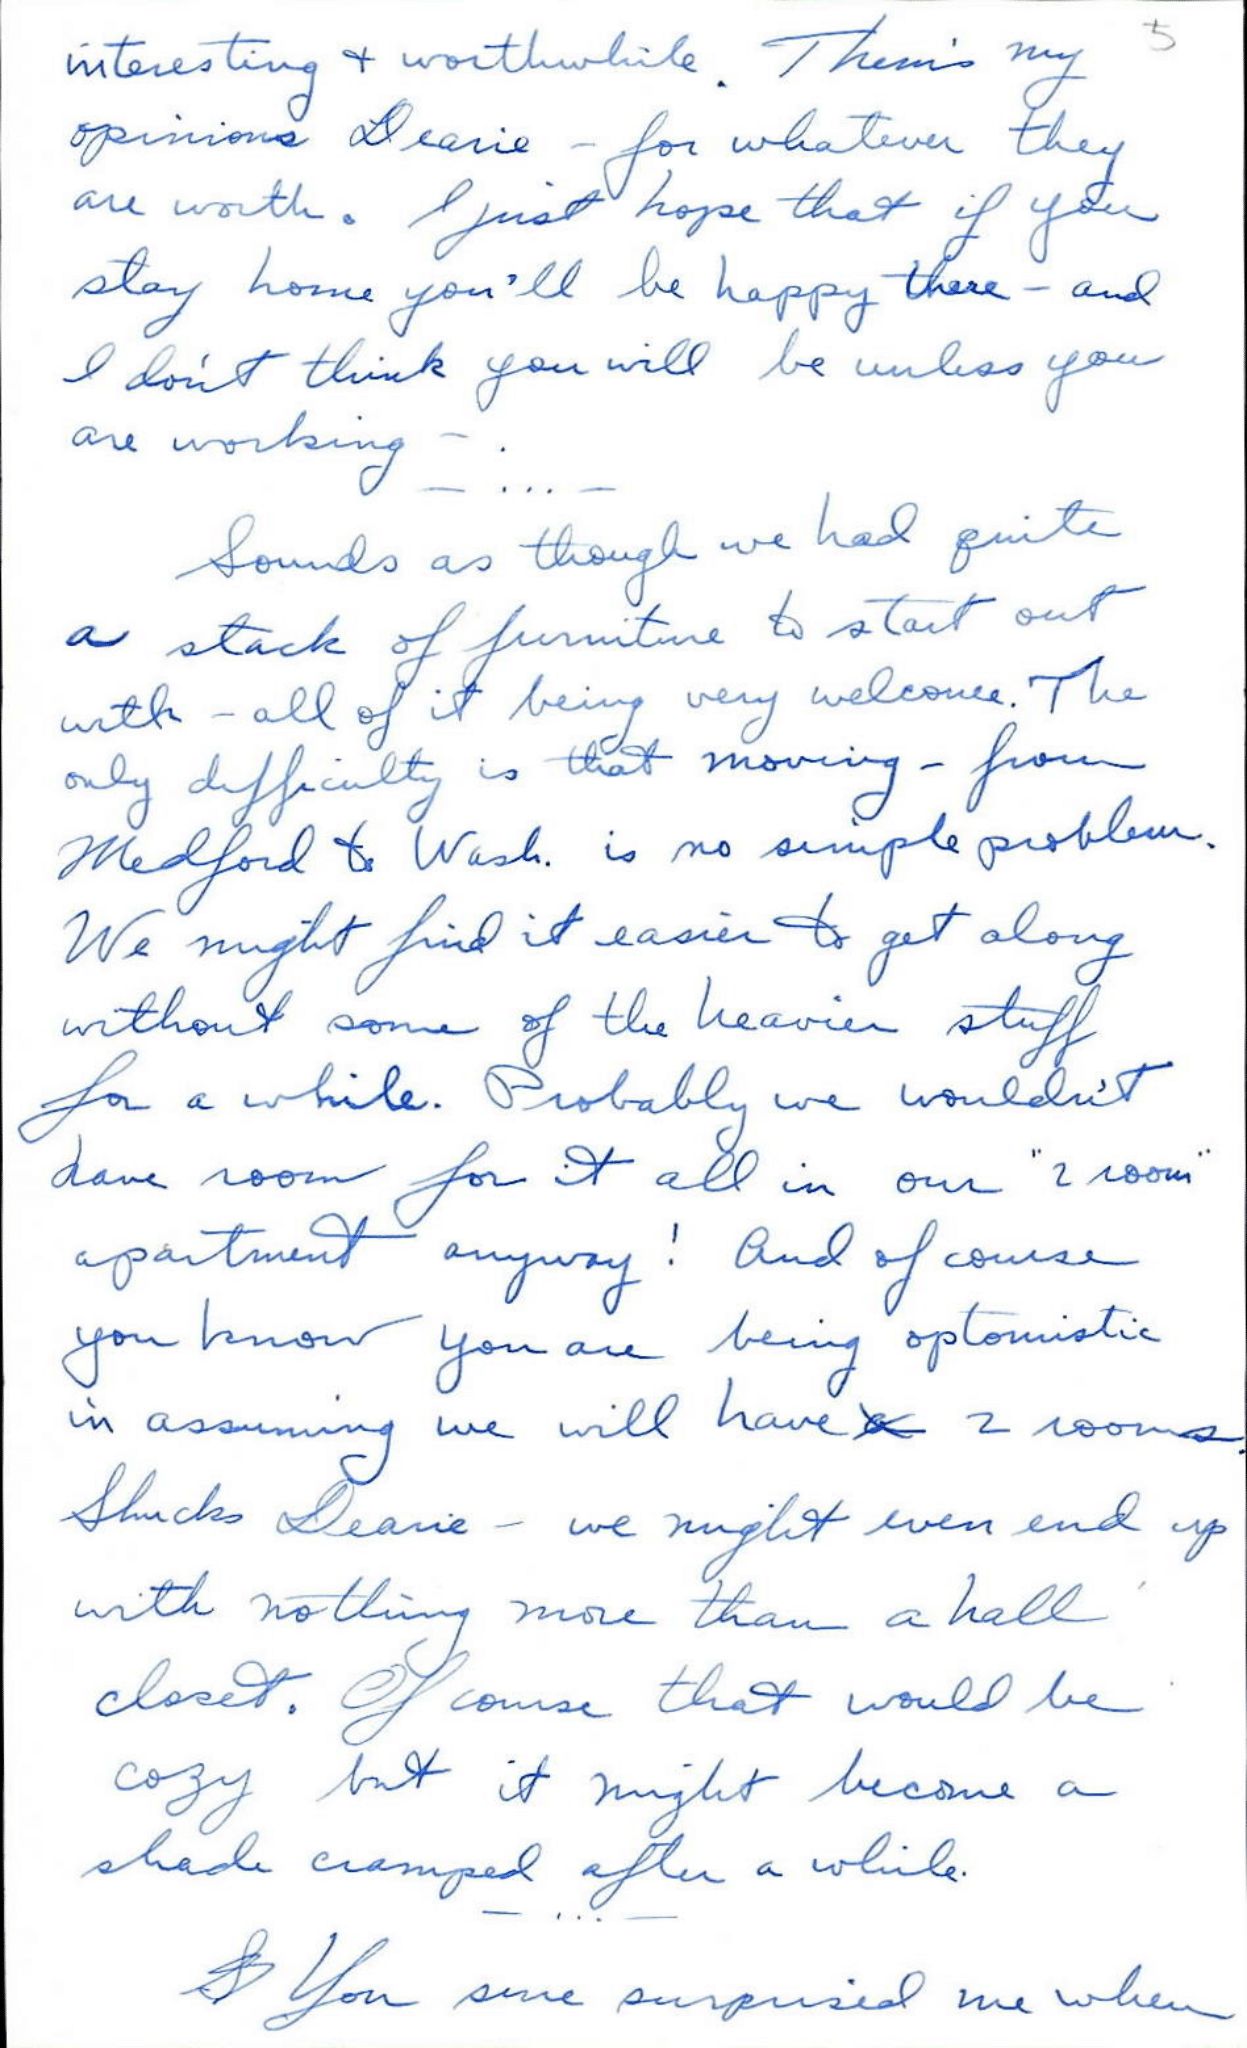 5
interesting + worthwhile. Them's my
opinions Dearie - for whatever they
are worth. I just hope that if you
stay home you'll be happy there - and
I don't think you will be unless you
are working - .
- ... -
Sounds as though we had quite
a stack of furniture to start out
with - all of it being very welcome. The
only difficulty is that moving - from
Medford to Wash. is no simple problem.
We might find it easier to get along
without some of the heavier stuff
for a while. Probably we wouldn't
have room for it all in our "2 room"
apartment anyway! And of course
you know you are being optomistic
in assuming we will have 2 rooms.
Shucks Dearie - we might even end up
with nothing more than a hall
closet. Of course that would be
cozy but it might become a
shade cramped after a while.
- ... -
You sure surprised me when